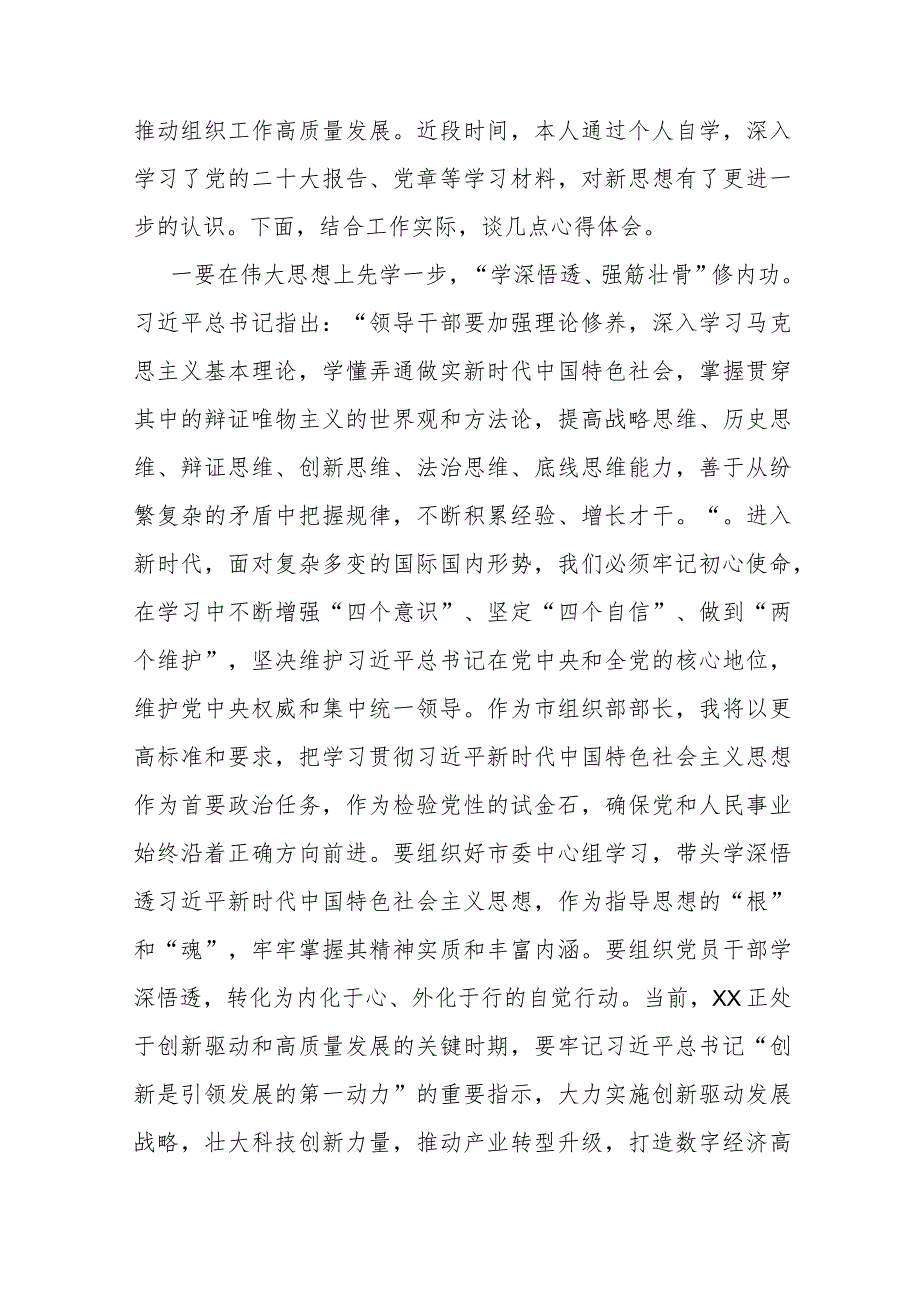 推动组织工作高质量发展。近段时间，本人通过个人自学，深入
学习了党的二十大报告、党章等学习材料，对新思想有了更进一
步的认识。下面，结合工作实际，谈几点心得体会。
一要在伟大思想上先学一步，“学深悟透、强筋壮骨”修内功。
习近平总书记指出：“领导干部要加强理论修养，深入学习马克
思主义基本理论，学懂弄通做实新时代中国特色社会，掌握贯穿
其中的辩证唯物主义的世界观和方法论，提高战略思维、历史思
维、辩证思维、创新思维、法治思维、底线思维能力，善于从纷
繁复杂的矛盾中把握规律，不断积累经验、增长才干。“。进入
新时代，面对复杂多变的国际国内形势，我们必须牢记初心使命，
在学习中不断增强“四个意识”、坚定“四个自信”、做到“两
个维护”，坚决维护习近平总书记在党中央和全党的核心地位，
维护党中央权威和集中统一领导。作为市组织部部长，我将以更
高标准和要求，把学习贯彻习近平新时代中国特色社会主义思想
作为首要政治任务，作为检验党性的试金石，确保党和人民事业
始终沿着正确方向前进。要组织好市委中心组学习，带头学深悟
透习近平新时代中国特色社会主义思想，作为指导思想的“根”
和“魂”，牢牢掌握其精神实质和丰富内涵。要组织党员干部学
深悟透，转化为内化于心、外化于行的自觉行动。当前，XX正处
于创新驱动和高质量发展的关键时期，要牢记习近平总书记“创
新是引领发展的第一动力”的重要指示，大力实施创新驱动发展
战略，壮大科技创新力量，推动产业转型升级，打造数字经济高